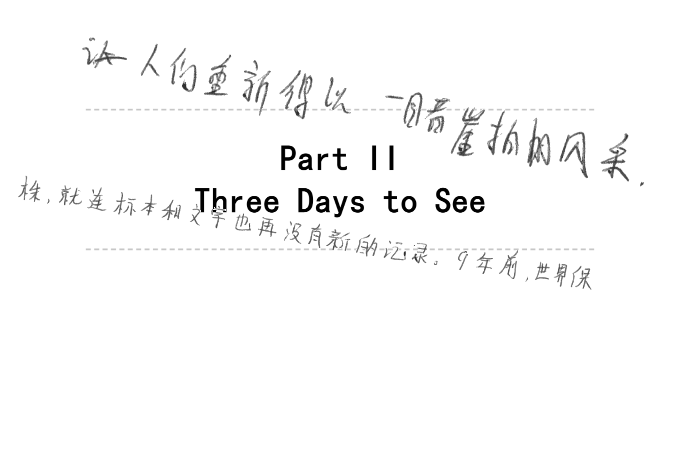 让人们重新得以一睹崖柏的风采.
Part II
Three Days to See
株,就连标本和文字也再没有新的记录。9年前,世界保